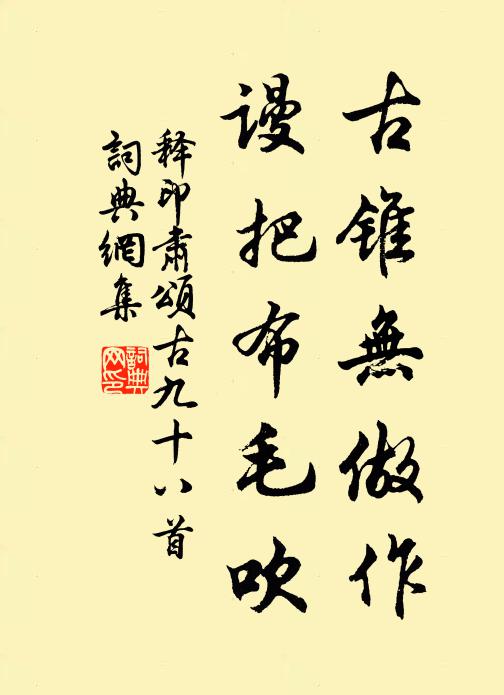 古錐無做作
謾把布毛吹
释印肅頌古九十八首
詞典網集
詞典网印